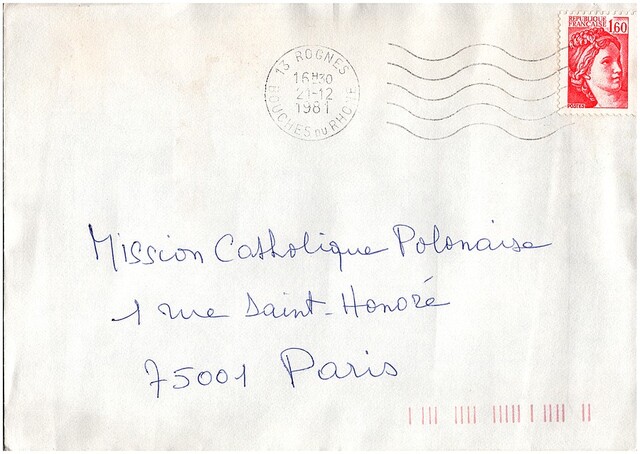 13 ROGNES
16H30
21-12
1981
BOUCHES DU RHONE
REPUBLIQUE
FRANÇAISE 1,60
POSTES
Mission Catholique Polonaise
1 rue Saint-Honoré
75001 Paris